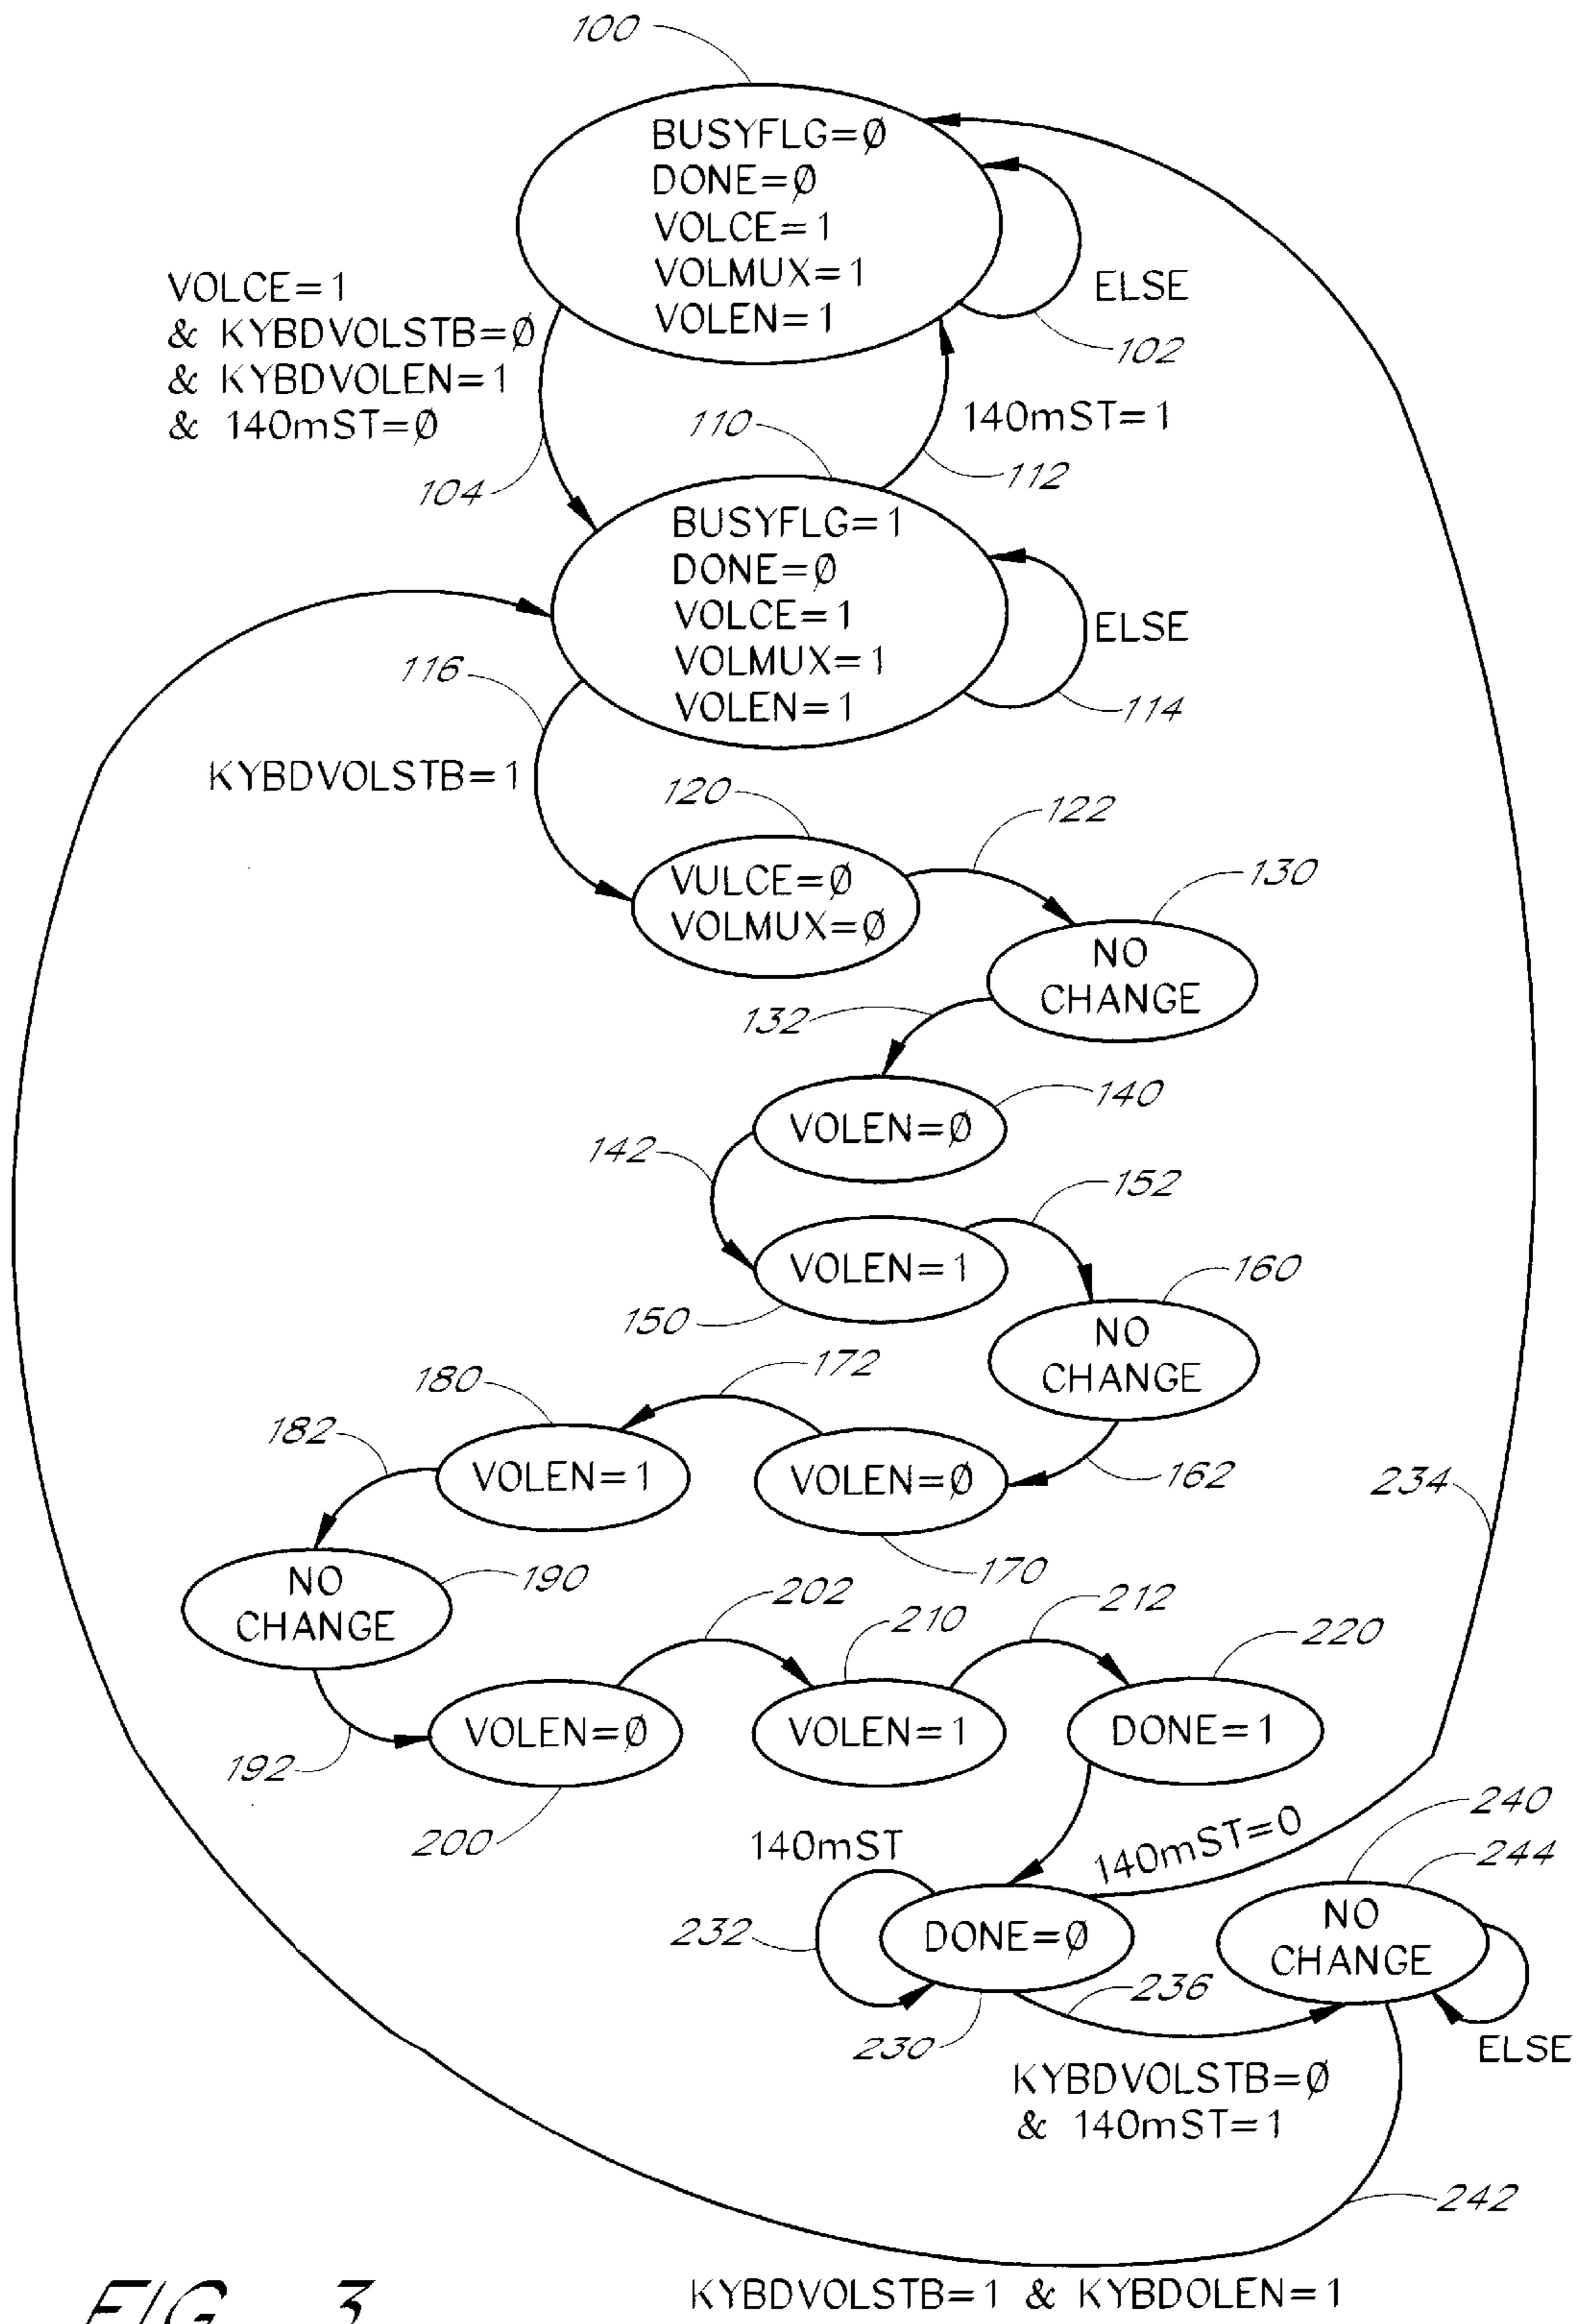 100
BUSYFLG=Ø
DONE=Ø
VOLCE=1
VOLMUX=1
VOLEN=1
ELSE
102
VOLCE=1
& KYBDVOLSTB=Ø
& KYBDVOLEN=1
& 140mST=Ø
104
110
140mST=1
112
BUSYFLG=1
DONE=Ø
VOLCE=1
VOLMUX=1
VOLEN=1
ELSE
114
116
KYBDVOLSTB=1
120
122
VULCE=Ø
VOLMUX=Ø
130
NO
CHANGE
132
140
VOLEN=Ø
142
152
VOLEN=1
150
160
NO
CHANGE
162
172
180
VOLEN=1
VOLEN=Ø
170
182
234
NO
CHANGE
190
192
202
210
212
220
VOLEN=Ø
200
VOLEN=1
DONE=1
140mST
140mST=0
240
244
232
DONE=Ø
230
236
NO
CHANGE
ELSE
KYBDVOLSTB=Ø
& 140mST=1
242
KYBDVOLSTB=1 & KYBDOLEN=1
FIG. 3